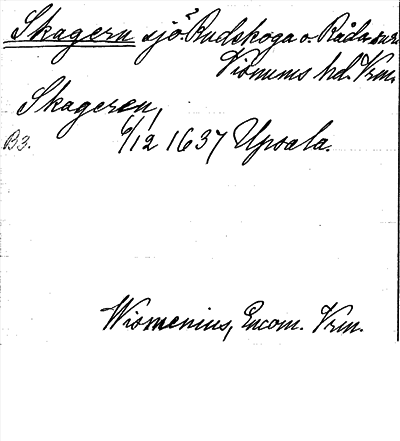 Skagern sjö Rudskoga o. Råda snr
Visnums hd. Vrm.
Skageren,
B3. 6/12 1637 Upsala.
Wismenius, Encom. Vrm.